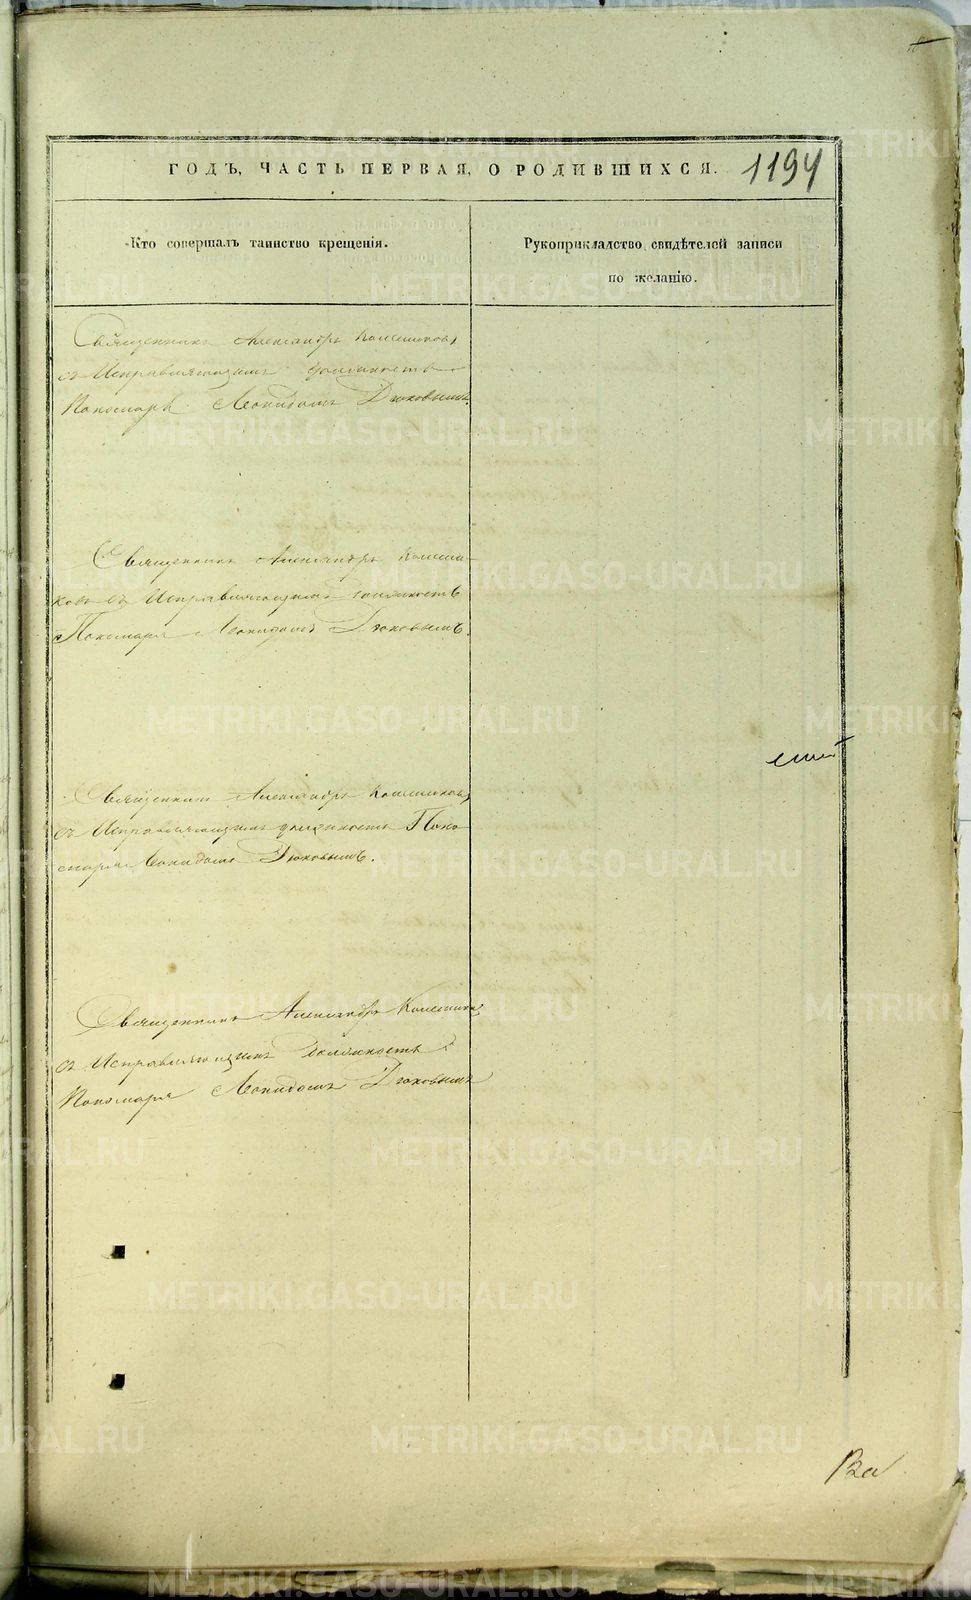 ГОДЪ, ЧАСТЬ ПЕРВАЯ, О РОДИВШИХСЯ.
1194
Кто совершалъ таинство крещенія.
Рукоприкладство свидѣтелей записи
по желанію.
Священникъ Александръ
съ Исправляющимъ должность
Пономаря Леонидомъ Дюковымъ.
Священникъ Александръ
съ Исправляющимъ должность
Пономаря Леонидомъ Дюковымъ.
Священникъ Александръ
съ Исправляющимъ должность Поно
маря Леонидомъ Дюковымъ.
Священникъ Александръ
съ Исправляющимъ должность
Пономаря Леонидомъ Дюковымъ
METRIKI.GASO-URAL.RU